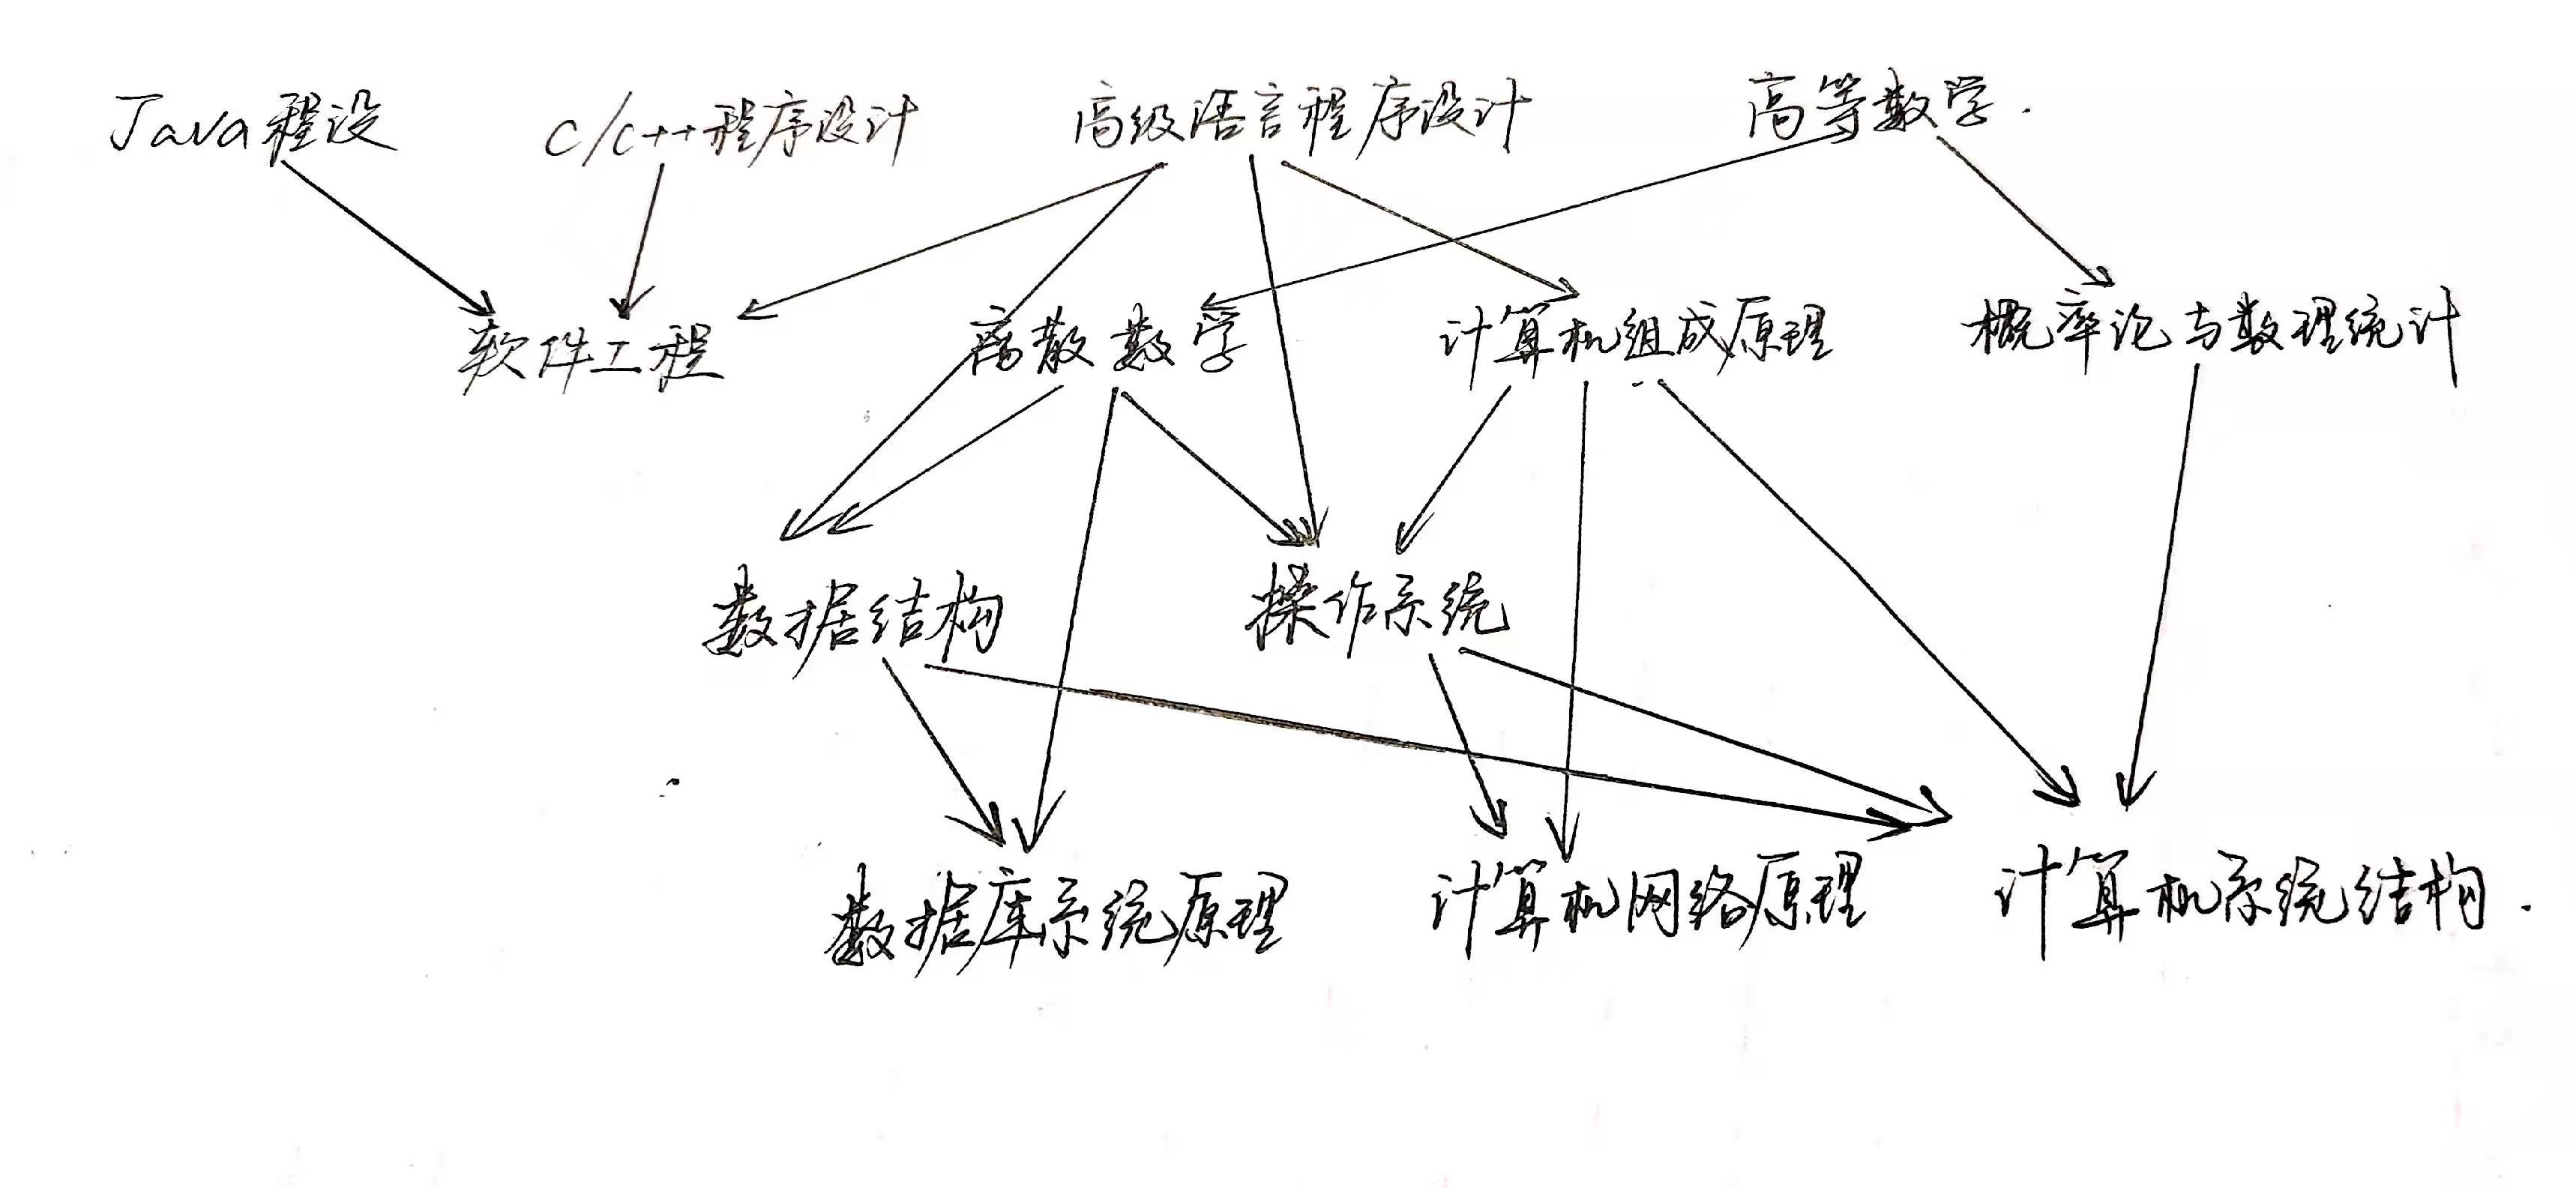 Java程设 C/C++程序设计 高级语言程序设计 高等数学.
软件工程 离散数学 计算机组成原理 概率论与数理统计
数据结构 操作系统
数据库系统原理 计算机网络原理 计算机系统结构.